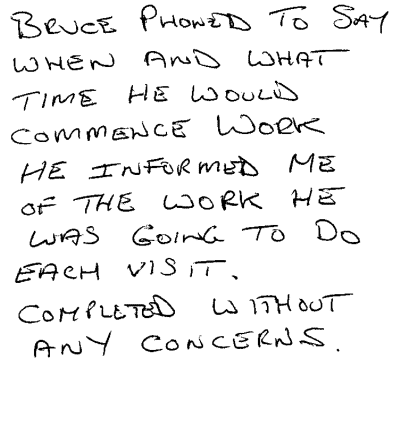 BRUCE PHONED TO SAY
WHEN AND WHAT
TIME HE WOULD
COMMENCE WORK
HE INFORMED ME
OF THE WORK HE
WAS GOING TO DO
EACH VISIT.
COMPLETED WITHOUT
ANY CONCERNS.